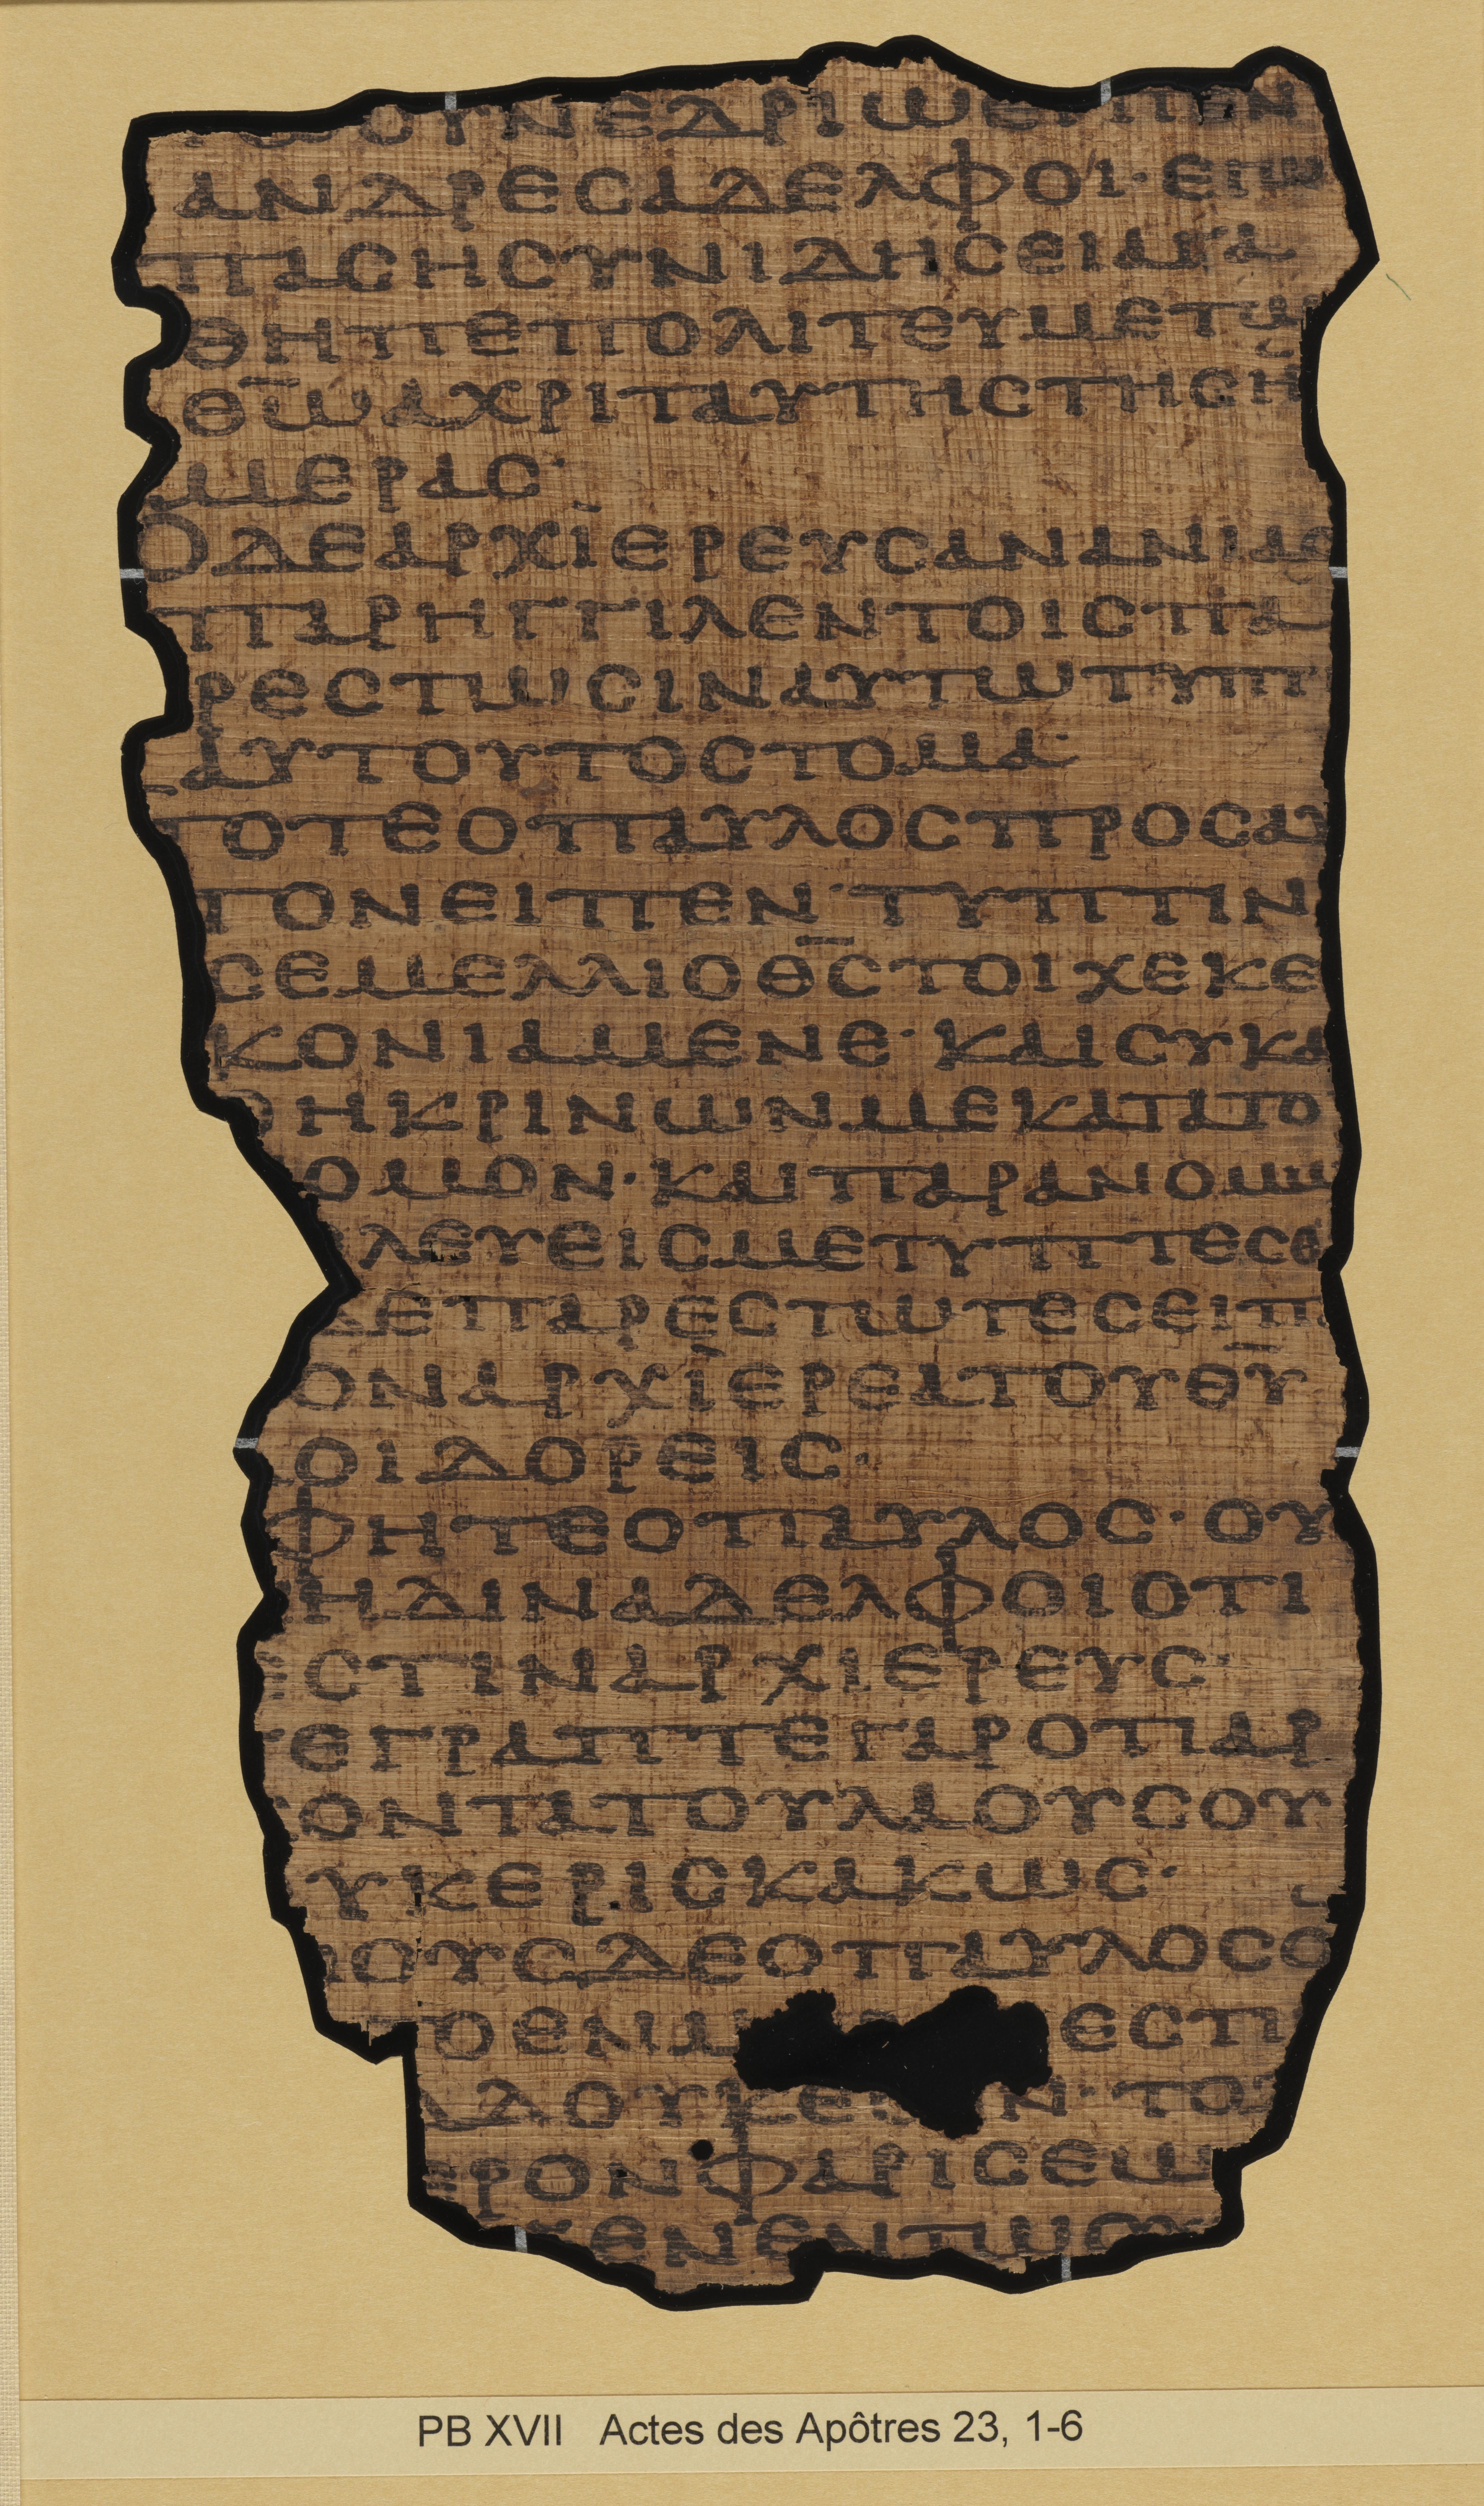 ΤωϹΥΝΕΔΡΙωΕΙΠΕΝ
ΑΝΔΡΕϹΑΔΕΛΦΟΙ·ΕΓω
ΠΑϹΗϹΥΝΙΔΗϹΕΙΑΓΑ
ΘΗΠΕΠΟΛΙΤΕΥΜΕΤω
Θ̅ω̅ΑΧΡΙΤΑΥΤΗϹΤΗϹΗ
ΜΕΡΑϹ·
ΟΔΕΑΡΧΙΕΡΕΥϹΑΝΑΝΙΑϹ
ΠΑΡΗΓΓΙΛΕΝΤΟΙϹΠΑ
ΡΕϹΤωϹΙΝΑΥΤωΤΥΠΤΙ
ΑΥΤΟΥΤΟϹΤΟΜΑ·
ΤΟΤΕΟΠΑΥΛΟϹΠΡΟϹΑΥ
ΤΟΝΕΙΠΕΝ·ΤΥΠΤΙΝ
ϹΕΜΕΛΛΙΟΘ̅Ϲ̅ΤΟΙΧΕΚΕ
ΚΟΝΙΑΜΕΝΕ·ΚΑΙϹΥΚΑ
ΘΗΚΡΙΝωΝΜΕΚΑΤΑΤΟ
ΟΜΟΝ·ΚΑΙΠΑΡΑΝΟΜω
ΛΕΥΕΙϹΜΕΤΥΠΤΕϹΘ
ΔΕΠΑΡΕϹΤωΤΕϹΕΙΠ
ΟΝΑΡΧΙΕΡΕΑΤΟΥΘ̅Υ̅
ΟΙΔΟΡΕΙϹ·
ΦΗΤΕΟΠΑΥΛΟϹ·ΟΥ
ΗΔΙΝΑΔΕΛΦΟΙΟΤΙ
ΕϹΤΙΝΑΡΧΙΕΡΕΥϹ·
ΓΕΓΡΑΠΤΕΓΑΡΟΤΙΑΡ
ΟΝΤΑΤΟΥΛΑΟΥϹΟΥ
ΥΚΕΡΙϹΚΑΚωϹ·
ΝΟΥϹΔΕΟΠΑΥΛΟϹΟ
ΤΟΕΝΜ ΕϹΤΙ
ΔΔΟΥΚΕ Ν·ΤΟ
ΕΡΟΝΦΑΡΙϹΕω
ΕΝΕΝΤωϹΥ